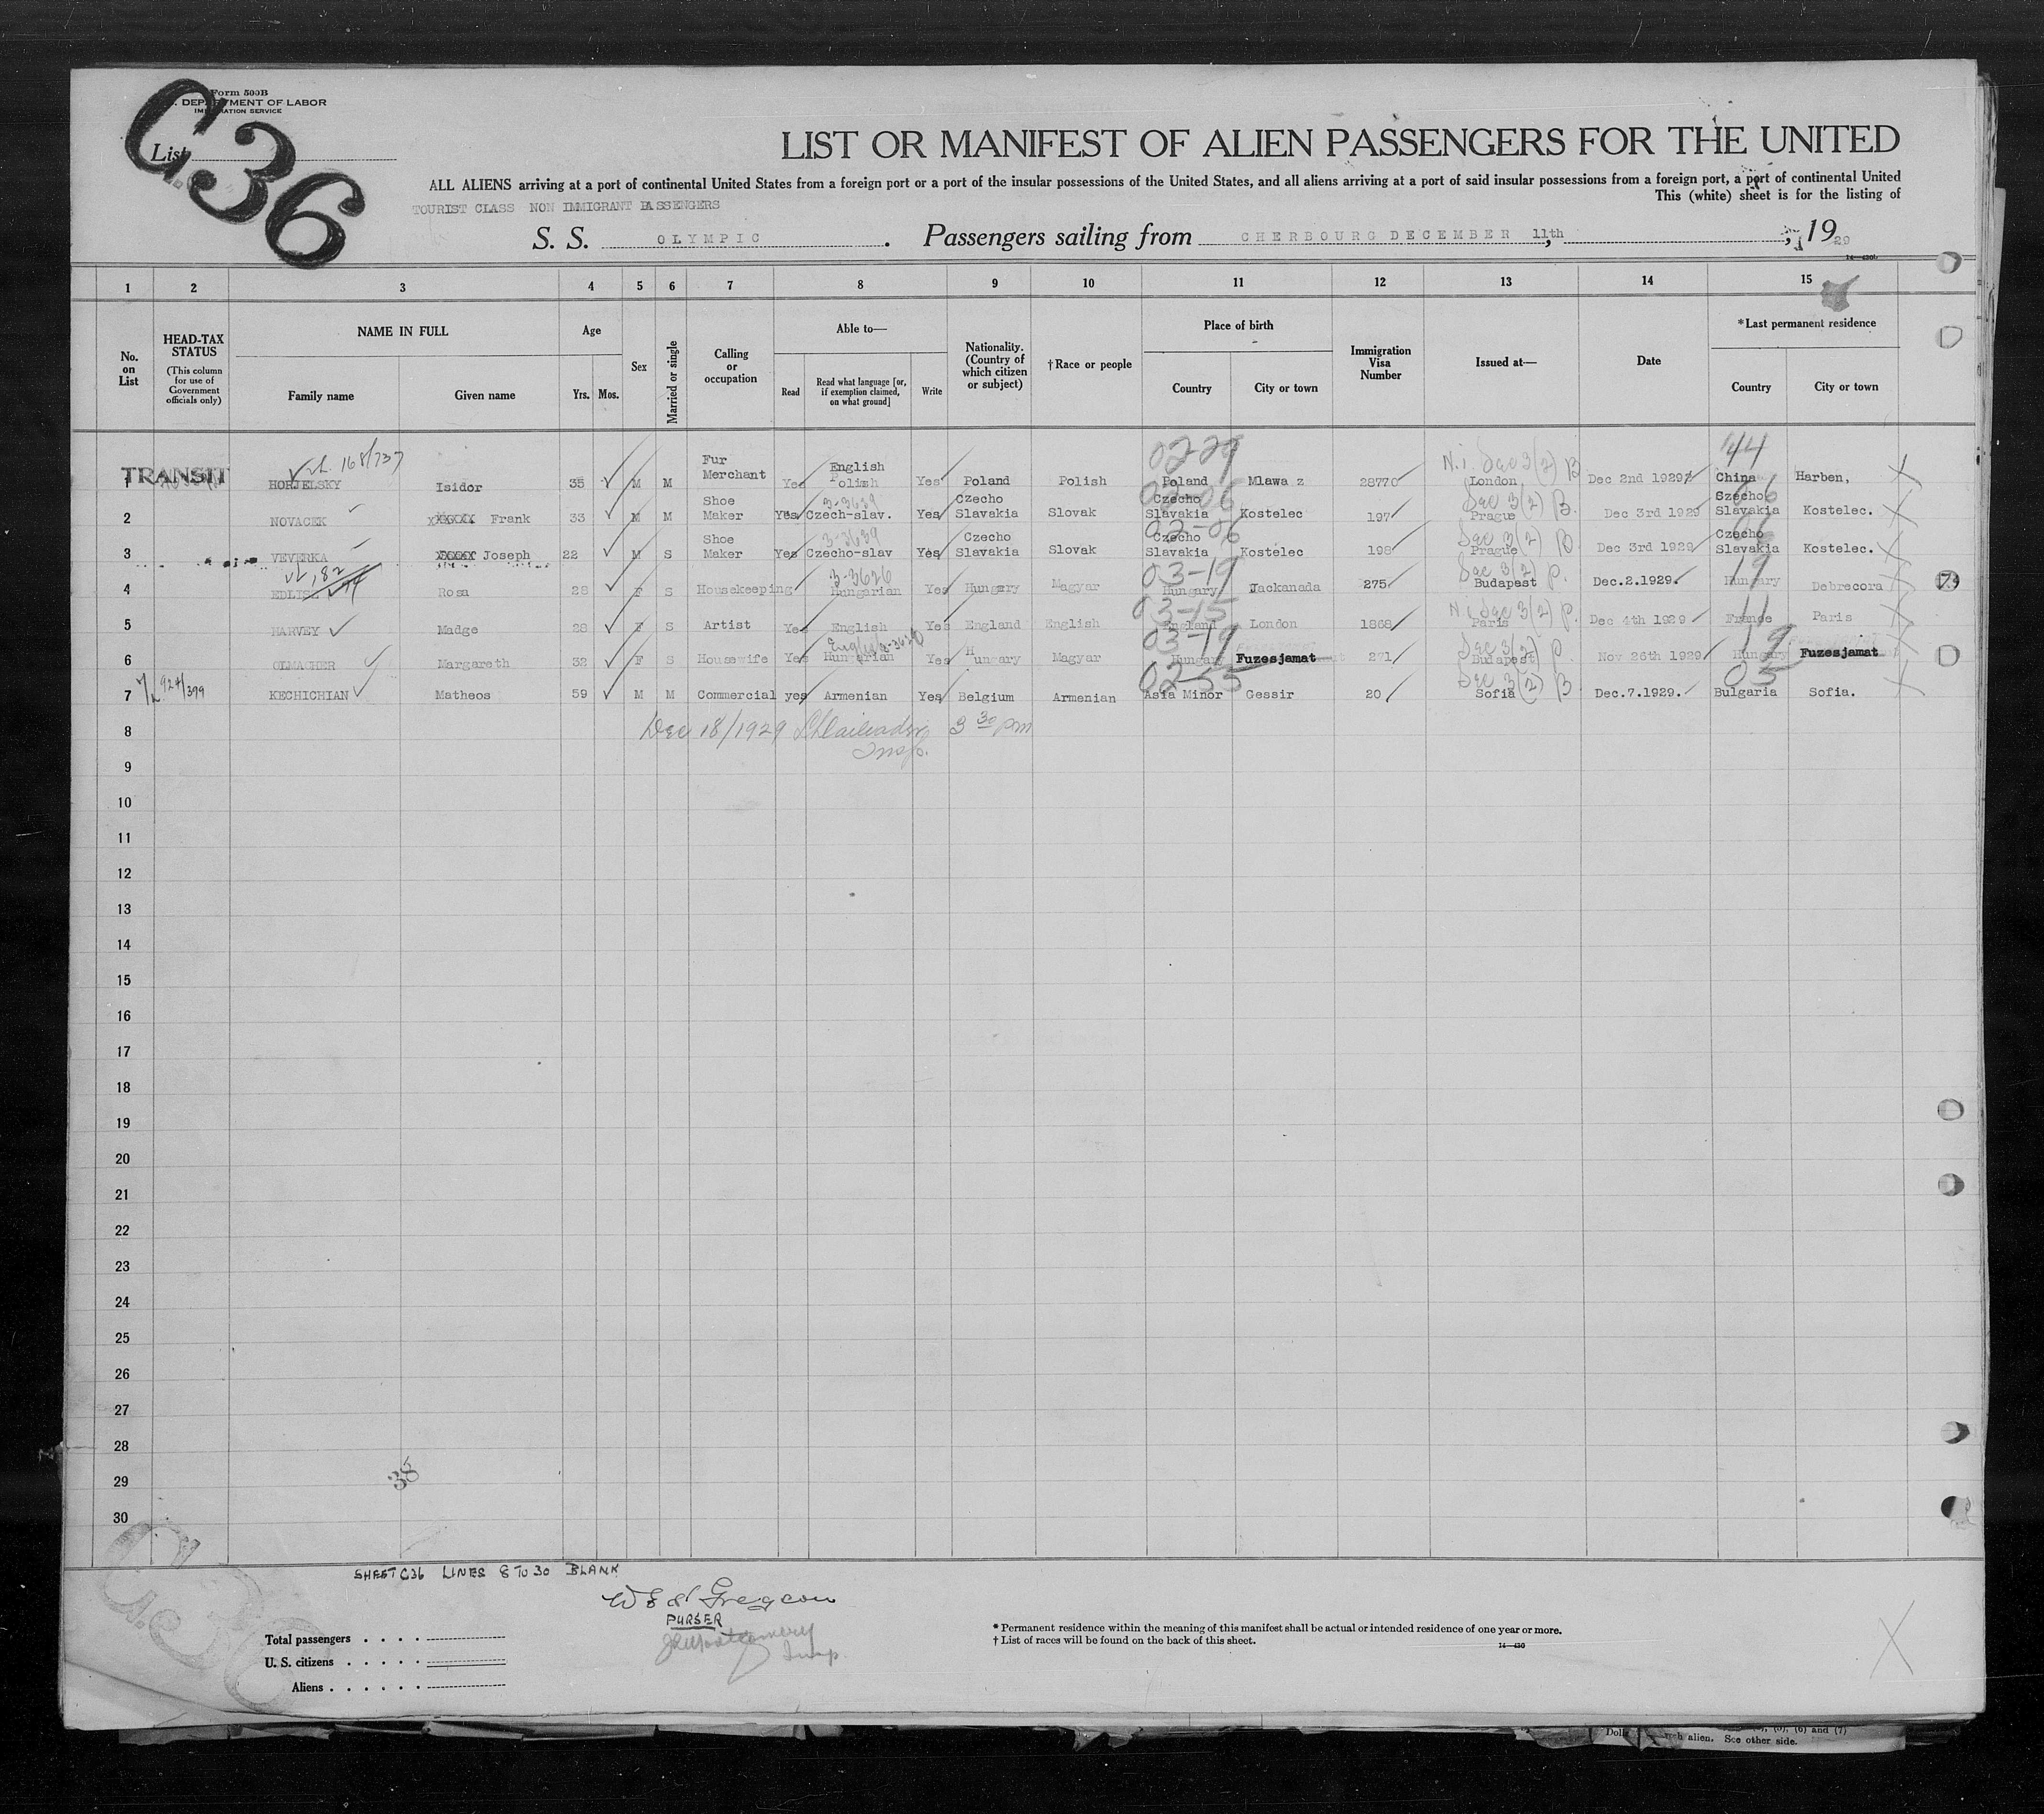 Form 500B
DEPARTMENT OF LABOR
IMMIGRATION SERVICE
C36
List
LIST OR MANIFEST OF ALIEN PASSENGERS FOR THE UNITED
ALL ALIENS arriving at a port of continental United States from a foreign port or a port of the insular possessions of the United States, and all aliens arriving at a port of said insular possessions from a foreign port, a port of continental United
This (white) sheet is for the listing of
TOURIST CLASS NON IMMIGRANT PASSENGERS
S. S. OLYMPIC. Passengers sailing from CHERBOURG DECEMBER 11th, 1929
1 2 3 4 5 6 7 8 9 10 11 12 13 14 15
No. on List
HEAD-TAX STATUS (This column for use of Government officials only)
NAME IN FULL
Family name Given name
Age
Yrs. Mos.
Sex
Married or single
Calling or occupation
Able to—
Read
Read what language [or, if exemption claimed, on what ground]
Write
Nationality. (Country of which citizen or subject)
†Race or people
Place of birth
Country City or town
Immigration Visa Number
Issued at—
Date
*Last permanent residence
Country City or town
TRANSIT
168/737 02-29 44 N.i. Sec 3(2) B
1 HORJELSKY Isidor 35 M M Fur Merchant Yes English Polish Yes Poland Polish Poland Mlawa z 28770 London Dec 2nd 1929 China Harben,
3-3639 02-06 06 Sec 3(2) B.
2 NOVACEK Frank 33 M M Shoe Maker Yes Czech-slav. Yes Czecho Slavakia Slovak Czecho Slavakia Kostelec 197 Prague Dec 3rd 1929 Czecho Slavakia Kostelec.
3-3639 02-06 06 Sec 3(2) B
3 VEVERKA Joseph 22 M S Shoe Maker Yes Czecho-slav Yes Czecho Slavakia Slovak Czecho Slavakia Kostelec 198 Prague Dec 3rd 1929 Czecho Slavakia Kostelec.
3-3626 03-19 19 Sec 3(2) P.
4 Rosa 28 F S Housekeeping Hungarian Yes Hungary Magyar Hungary Jackanada 275 Budapest Dec.2.1929. Hungary Debrecora
03-15 11 N.i. Sec 3(2) P.
5 HARVEY Madge 28 F S Artist Yes English Yes England English England London 1868 Paris Dec 4th 1929 France Paris
English 03-19 19 Sec 3(2) P
6 OLMACHER Margareth 32 F S Housewife Yes Hungarian Yes Hungary Magyar Hungary Fuzesjamat 271 Budapest Nov 26th 1929 Hungary Fuzesjamat
924/399 02-55 05 Sec 3(2) B
7 KECHICHIAN Matheos 59 M M Commercial yes Armenian Yes Belgium Armenian Asia Minor Gessir 20 Sofia Dec.7.1929. Bulgaria Sofia.
8 Dec 18/1929 3 30 pm
Insp.
9
10
11
12
13
14
15
16
17
18
19
20
21
22
23
24
25
26
27
28
29
30
38
SHEET C36 LINES 8 TO 30 BLANK
PURSER
Montgomery
Insp.
Total passengers
U. S. citizens
Aliens
* Permanent residence within the meaning of this manifest shall be actual or intended residence of one year or more.
† List of races will be found on the back of this sheet.
alien. See other side.